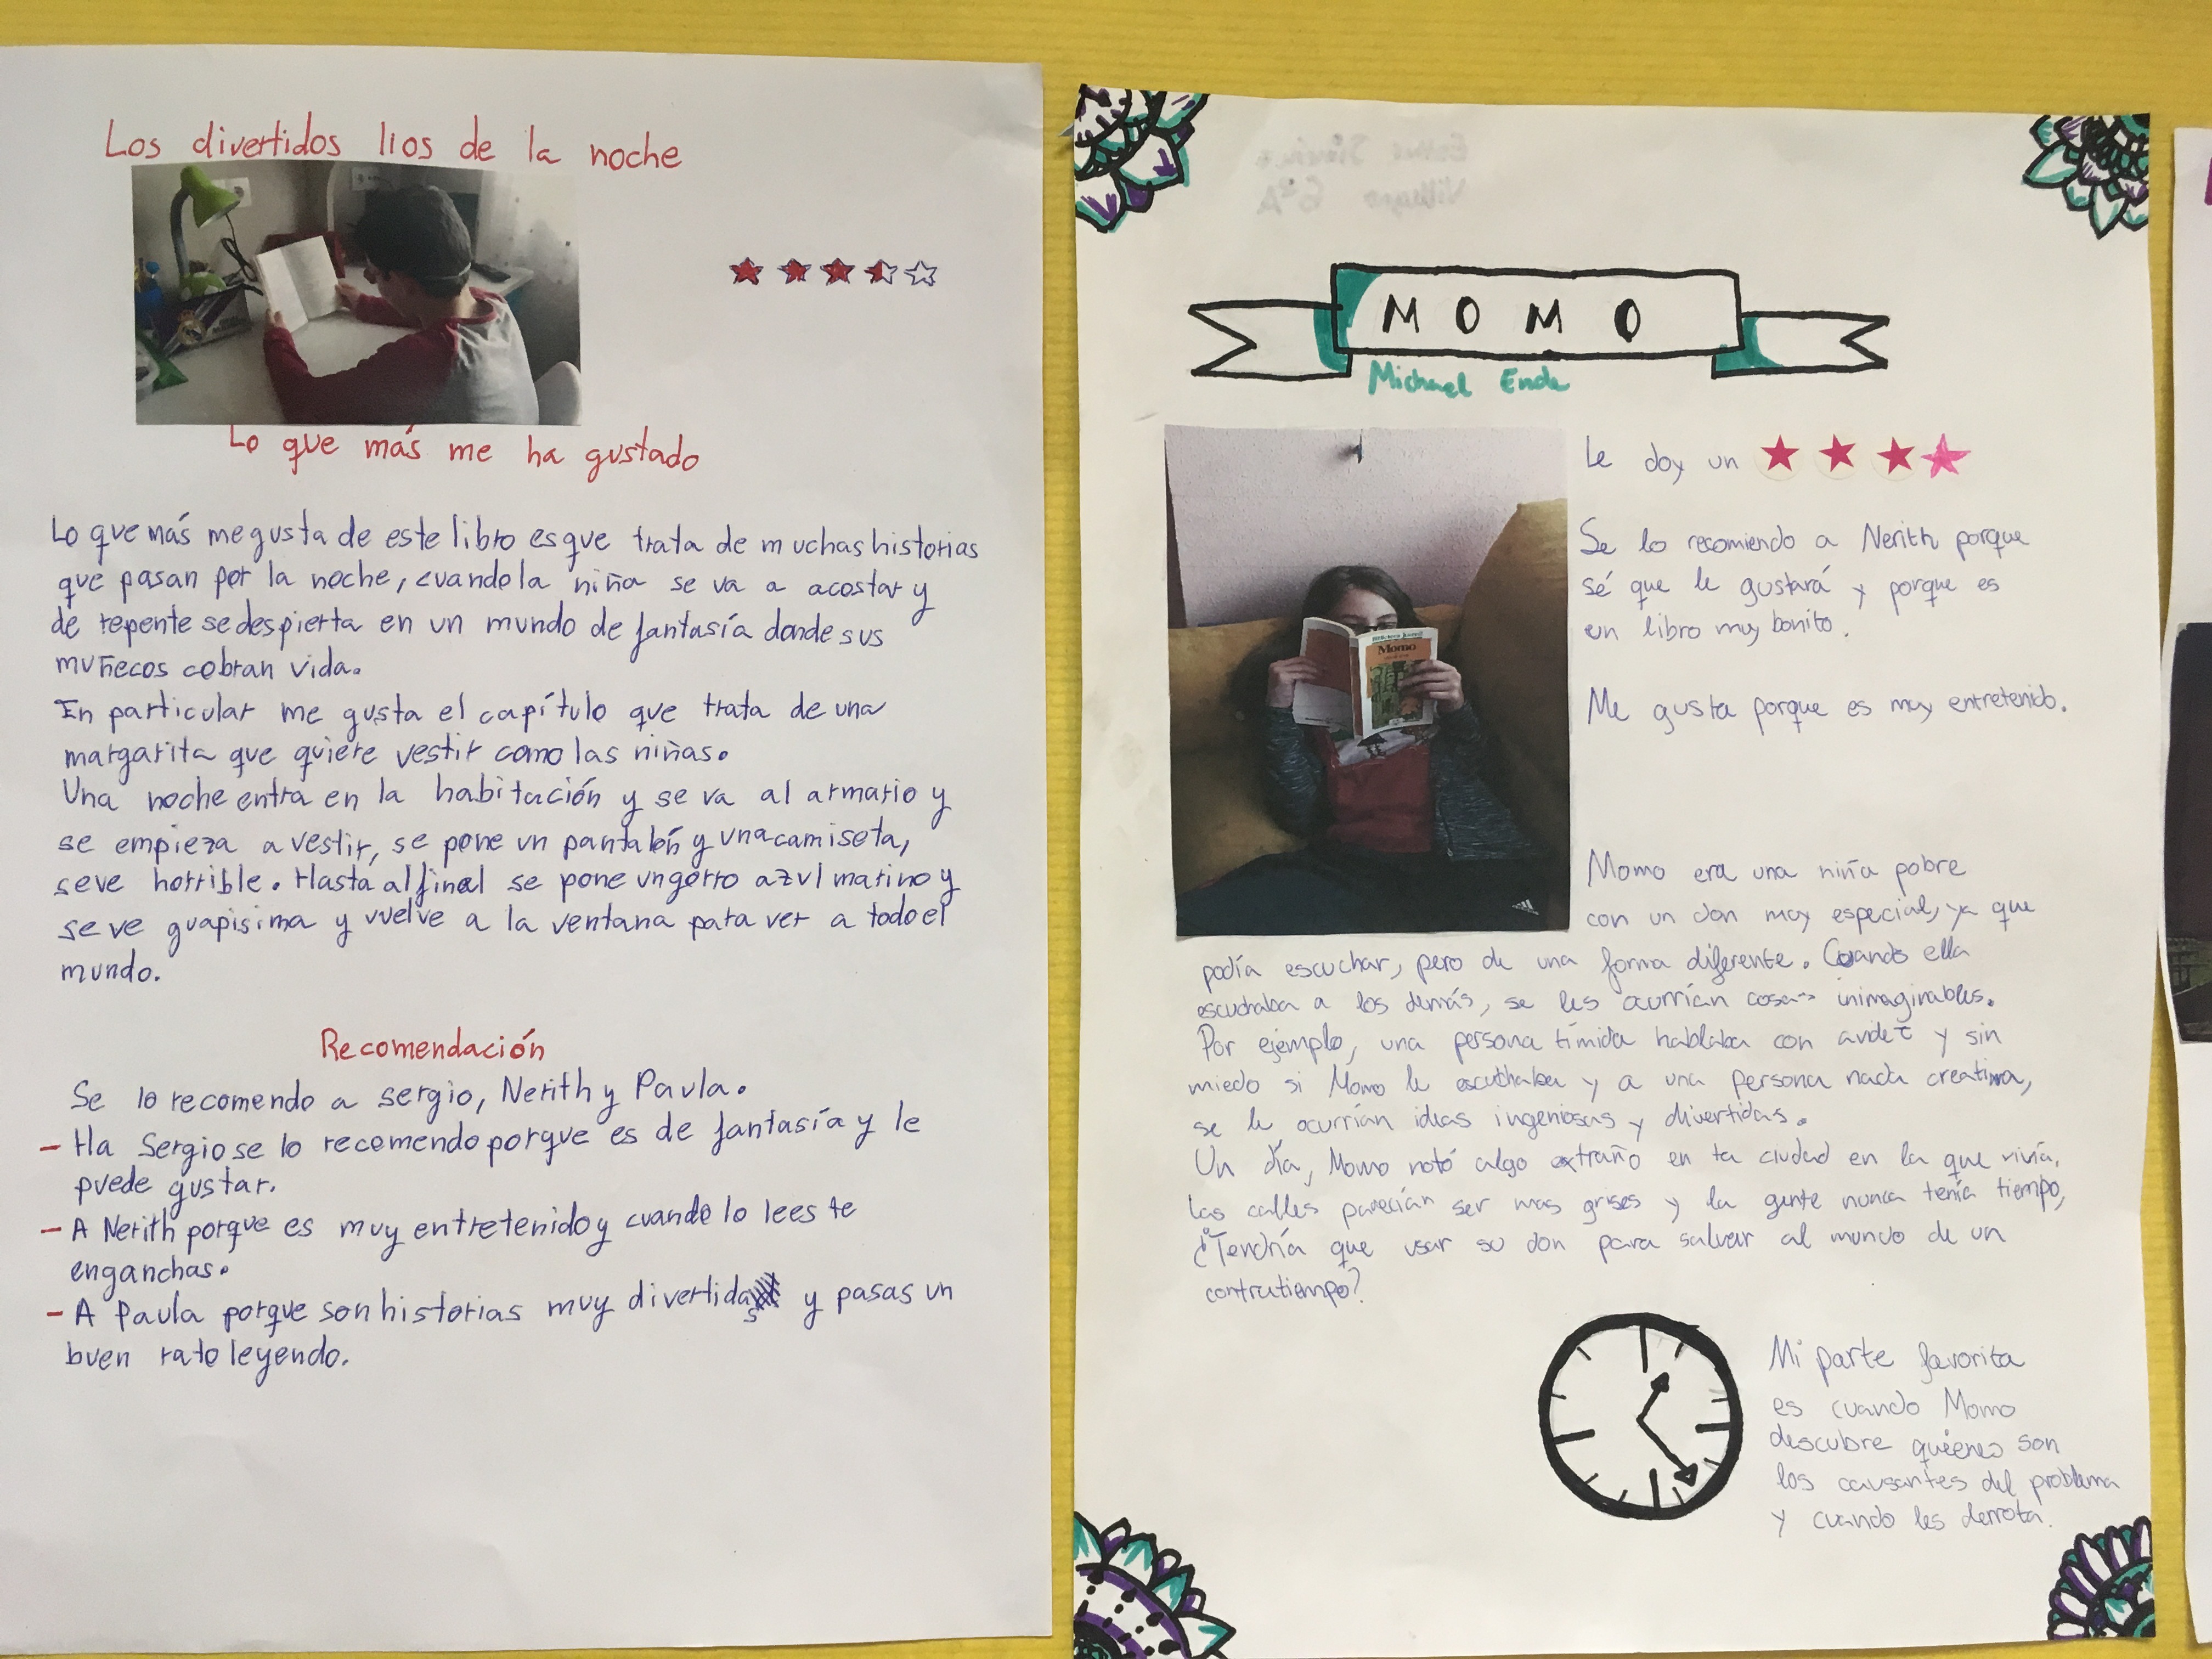 Los divertidos lios de la noche
Lo que más me ha gustado
Lo que más me gusta de este libro es que trata de muchas historias
que pasan por la noche, cuando la niña se va a acostar y
de repente se despierta en un mundo de fantasía donde sus
muñecos cobran vida.
En particular me gusta el capítulo que trata de una
margarita que quiere vestir como las niñas.
Una noche entra en la habitación y se va al armario y
se empieza a vestir, se pone un pantalón y una camiseta,
se ve horrible. Hasta al final se pone un gorro azul marino y
se ve guapisima y vuelve a la ventana para ver a todo el
mundo.
Recomendación
Se lo recomendo a sergio, Nerith y Paula.
- Ha Sergio se lo recomendo porque es de fantasía y le
puede gustar.
- A Nerith porque es muy entretenido y cuando lo lees te
enganchas.
- A Paula porque son historias muy divertidas y pasas un
buen rato leyendo.
6ºA
MOMO
Michael Ende
Le doy un
Se lo recomiendo a Nerith porque
sé que le gustará y porque es
un libro muy bonito.
Me gusta porque es muy entretenido.
Momo
Momo era una niña pobre
con un don muy especial, ya que
podía escuchar, pero de una forma diferente. Cuando ella
escuchaba a los demás, se les ocurrían cosas inimaginables.
Por ejemplo, una persona tímida hablaba con y sin
miedo si Momo le escuchaba y a una persona nada creativa,
se le ocurrían ideas ingeniosas y divertidas.
Un día, Momo notó algo extraño en la ciudad en la que vivía.
Las calles parecían ser mas grises y la gente nunca tenía tiempo,
¿Tendría que usar su don para salvar al mundo de un
contratiempo?
Mi parte favorita
es cuando Momo
descubre quienes son
los causantes del problema
y cuando les derrota.